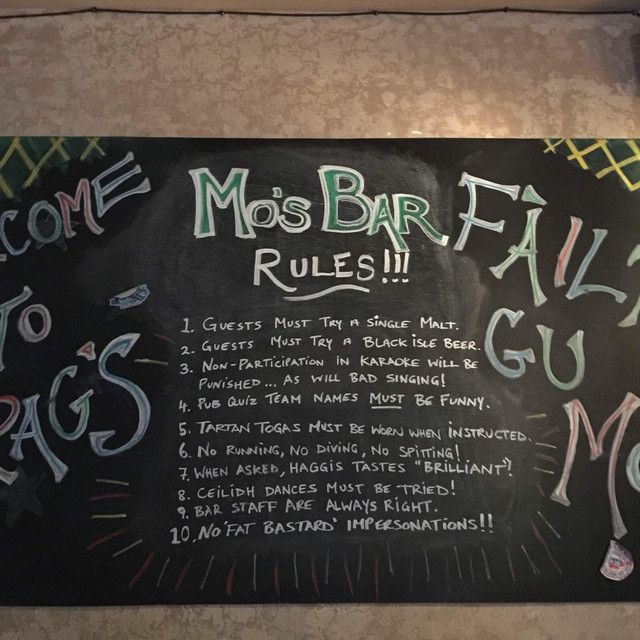 COME
TO
RAG'S
MO'S BAR
RULES!!!
1. GUESTS MUST TRY A SINGLE MALT.
2. GUESTS MUST TRY A BLACK ISLE BEER.
3. NON-PARTICIPATION IN KARAOKE WILL BE
PUNISHED... AS WILL BAD SINGING!
4. PUB QUIZ TEAM NAMES MUST BE FUNNY.
5. TARTAN TOGAS MUST BE WORN WHEN INSTRUCTED.
6. NO RUNNING, NO DIVING, NO SPITTING!
7. WHEN ASKED, HAGGIS TASTES "BRILLIANT"!
8. CEILIDH DANCES MUST BE TRIED!
9. BAR STAFF ARE ALWAYS RIGHT.
10. NO 'FAT BASTARD' IMPERSONATIONS!!
FÀILT
GU
MO